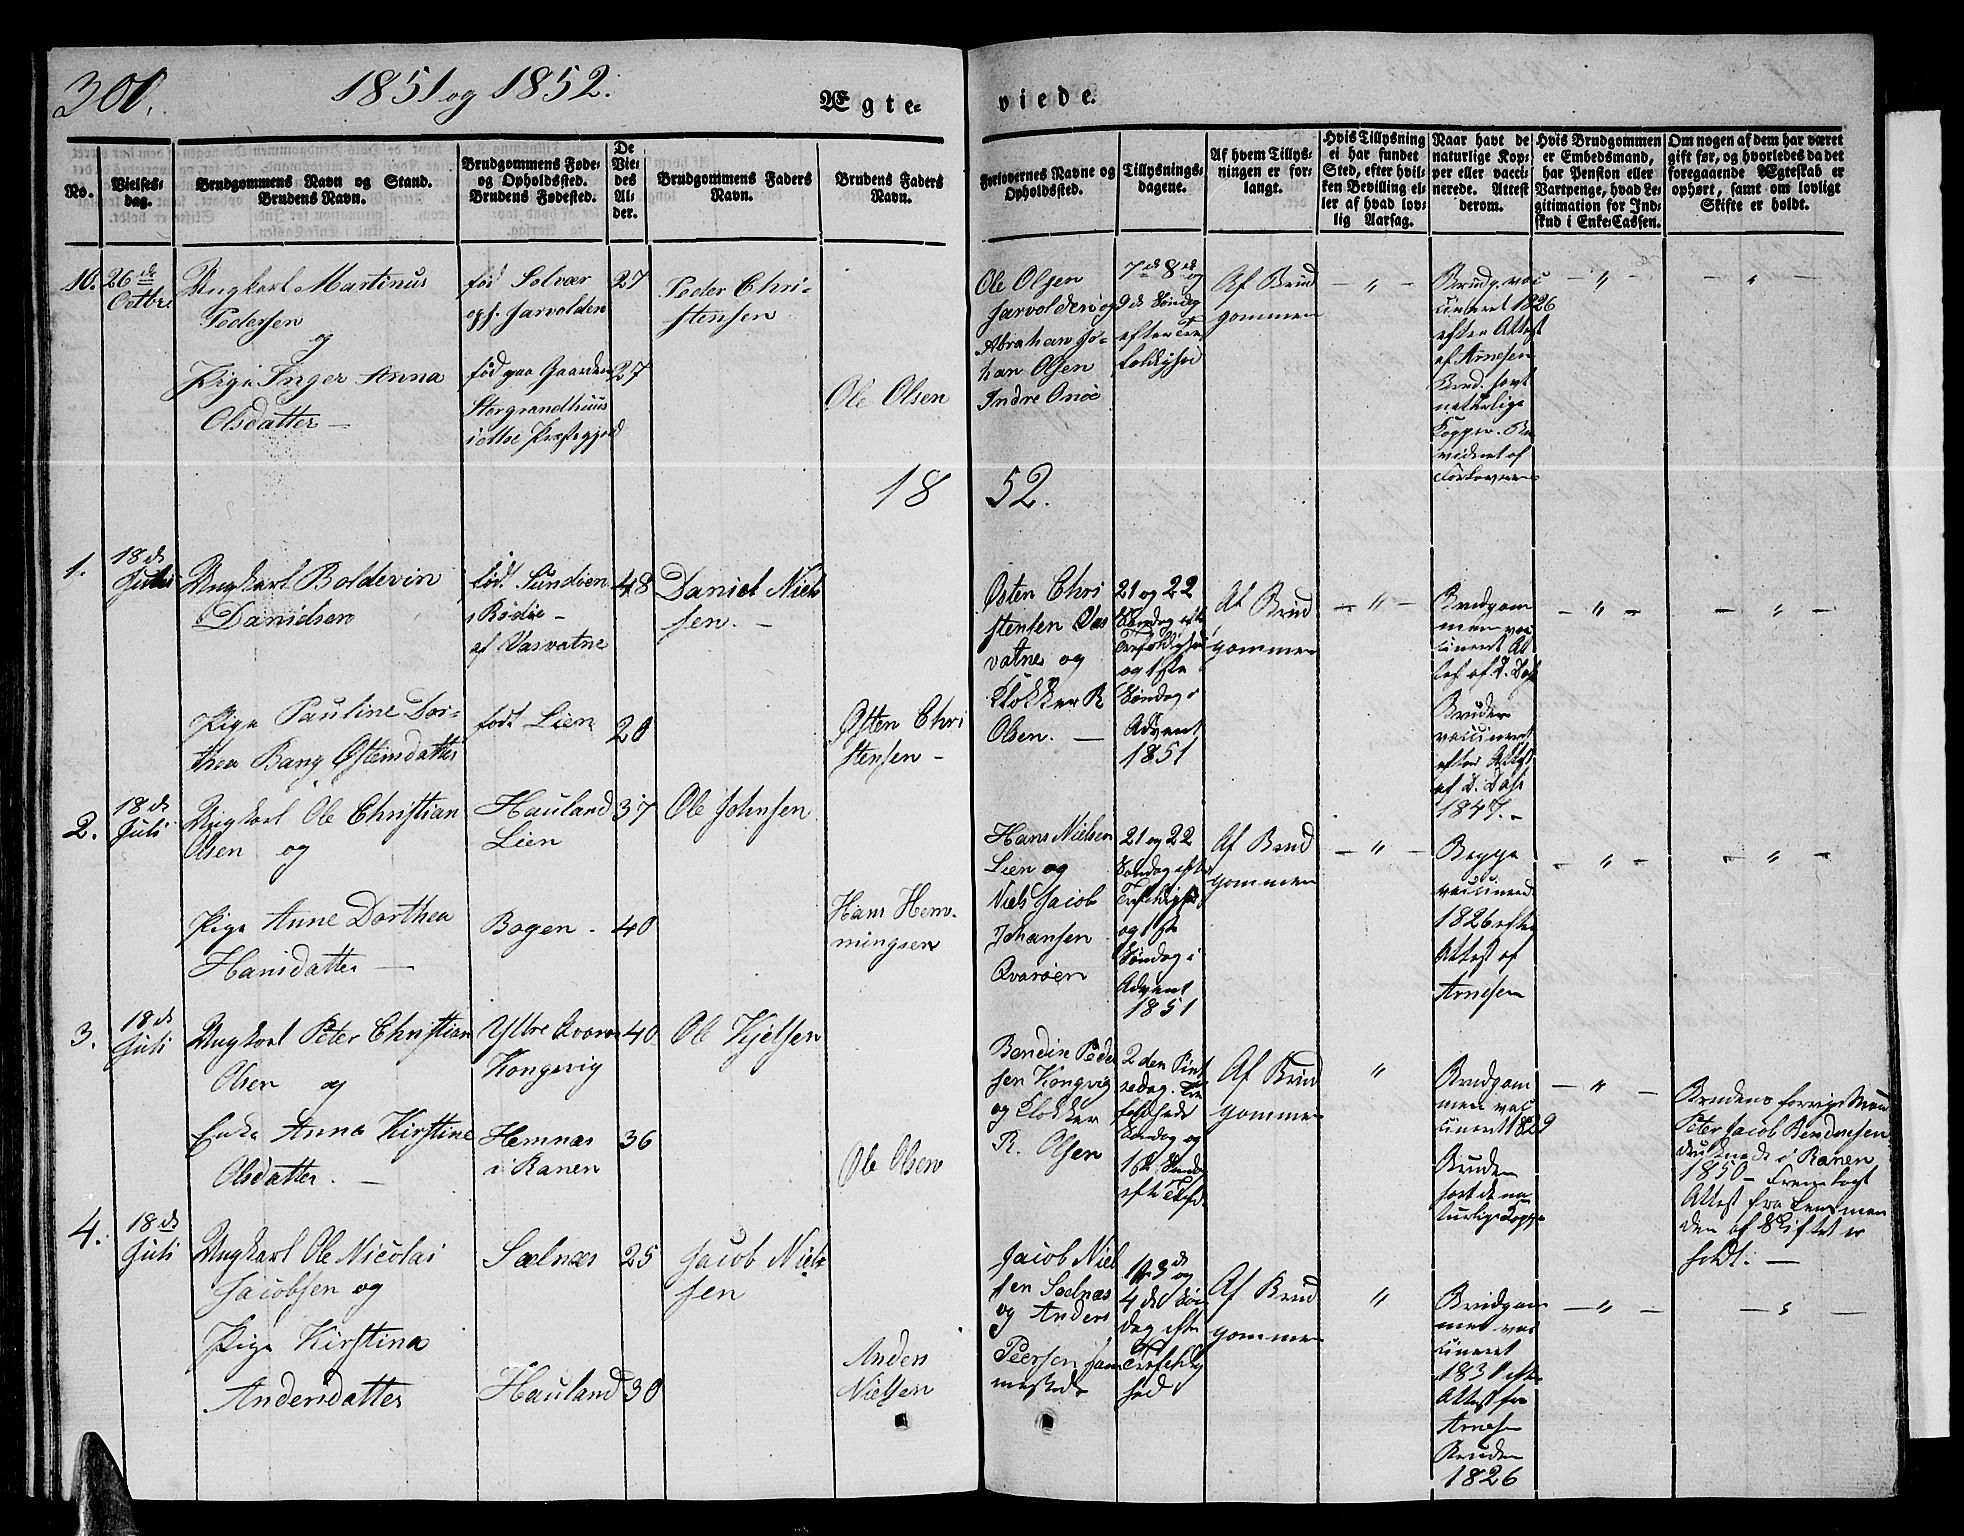 301.
1851 og 1852.
Ægte=
viede.
No.
Vielses-
dag.
Brudgommens Navn og Stand.
Brudens Navn.
Brudgommens Føde-
og Opholdssted.
Brudens Fødested.
De
Vie-
des
Al-
der.
Brudgommens Faders
Navn.
Brudens Faders
Navn.
Forlovernes Navne og
Opholdssted.
Tillysnings-
dagene.
Af hvem Tillys-
ningen er for-
langt.
Hvis Tillysning
ei har fundet
Sted, efter hvil-
ken Bevilling el-
ler af hvad lov-
lig Aarsag.
Naar havt de
naturlige Kop-
per eller vacci-
nerede. Attest
derom.
Hvis Brudgommen
er Embedsmand,
har Pension eller
Vartpenge, hvad Le-
gitimation for Ind-
skud i Enke-Cassen.
Om nogen af dem har været
gift før, og hvorledes da det
foregaaende Ægteskab er
ophørt, samt om lovligt
Skifte er holdt.
10.
26 de
Octbr.
Ungkarl Martinus
Pedersen
og
Pige Inger Anna
Olsdatter —
fød Solvær
oph. Harvolden
fød paa Gaarden
Storgrandhuus
i dette Præstegjeld
27
27
Peder Chri-
stensen
Ole Olsen
Ole Olsen
Harvolden og
Abraham Jo-
han Olsen
Indre Onøe
7de 8de og
9de Søndag
efter Tre
foldighed
Af Brud
gommen
— " —
Brudg. vac
cineret 1826
efter Attest
af Arnesen
Brud. havt
naturlige
Kopper.
— " —
"
18 52.
1.
18 de
Juli
Ungkarl Boldevin
Danielsen
Pige Pauline Dor-
thea Bang Østensdatter
født Sundøen
i Rødøe —
af Vasvatne
født Lien
48
20
Daniel Niel
sen. —
Østen Chri
stensen —
Østen Chri
stensen Vas
vatne og
Klokker R
Olsen. —
21 og 22
Søndag efter
Trefoldighed
og 1ste
Søndag i
Advent
1851
Af Brud
gommen
— " —
Brudgom
men vac
cineret At
test af D. Dahl
Bruden
vaccineret
efter Attest
af D. Dahl
1847. —
— " —
— " —
2.
18 de
Juli
Ungkarl Ole Christian
Olsen og
Pige Anne Dorthea
Hansdatter —
Hauland
Lien
Bogen —
37
40
Ole Johnsen
Hans Hem-
mingsen
Hans Nielsen
Lien og
Niels Jacob
Johansen
Qvarøen
21 og 22
Søndag efter
Trefoldighed
og 1ste
Søndag i
Advent
1851
Af Brud
gommen
— " —
Begge
vaccinered
1826 efter
Attest af
Arnesen
— " —
— " —
3.
18 de
Juli
Ungkarl Peter Christian
Olsen og
Enke Anna Kirstine
Olsdatter. —
Yttre Qvarøe
Kongsvig
Hemnæs
i Ranen
40
36
Ole Kjelsen
Ole Olsen
Bendix Peder
sen Kongvig
og Klokker
R. Olsen
2 den Pint
sedag. Tre
foldheds
Søndag og
1ste Sønd
efter Tref.
Af Brud
gommen
"
Brudgom
men vac
cineret 1829
Bruden
havt de na
turlige Kopper
— " —
Brudens forrige Mand
Peter Jacob Bendixsen
druknede i Ranen
1850 — Fremlagt
Attest fra Lensman
den af Skiftet er
holdt. —
4.
18 de
Juli
Ungkarl Ole Nicolai
Jacobsen og
Pige Kirstina
Andersdatter
Sælnæs
Hauland
25
30
Jacob Niel-
sen
Anders
Nielsen
Jacob Niel
sen Selnæs
og Anders
Peersen sam
mesteds
3de og
4de Søn
dag efter
Trefoldig
hed
Af Brud
gommen
"
Brudgom
men vac
cineret
1831 efter
Attest fra
Arnesen
Bruden
1826
— " —
— " —